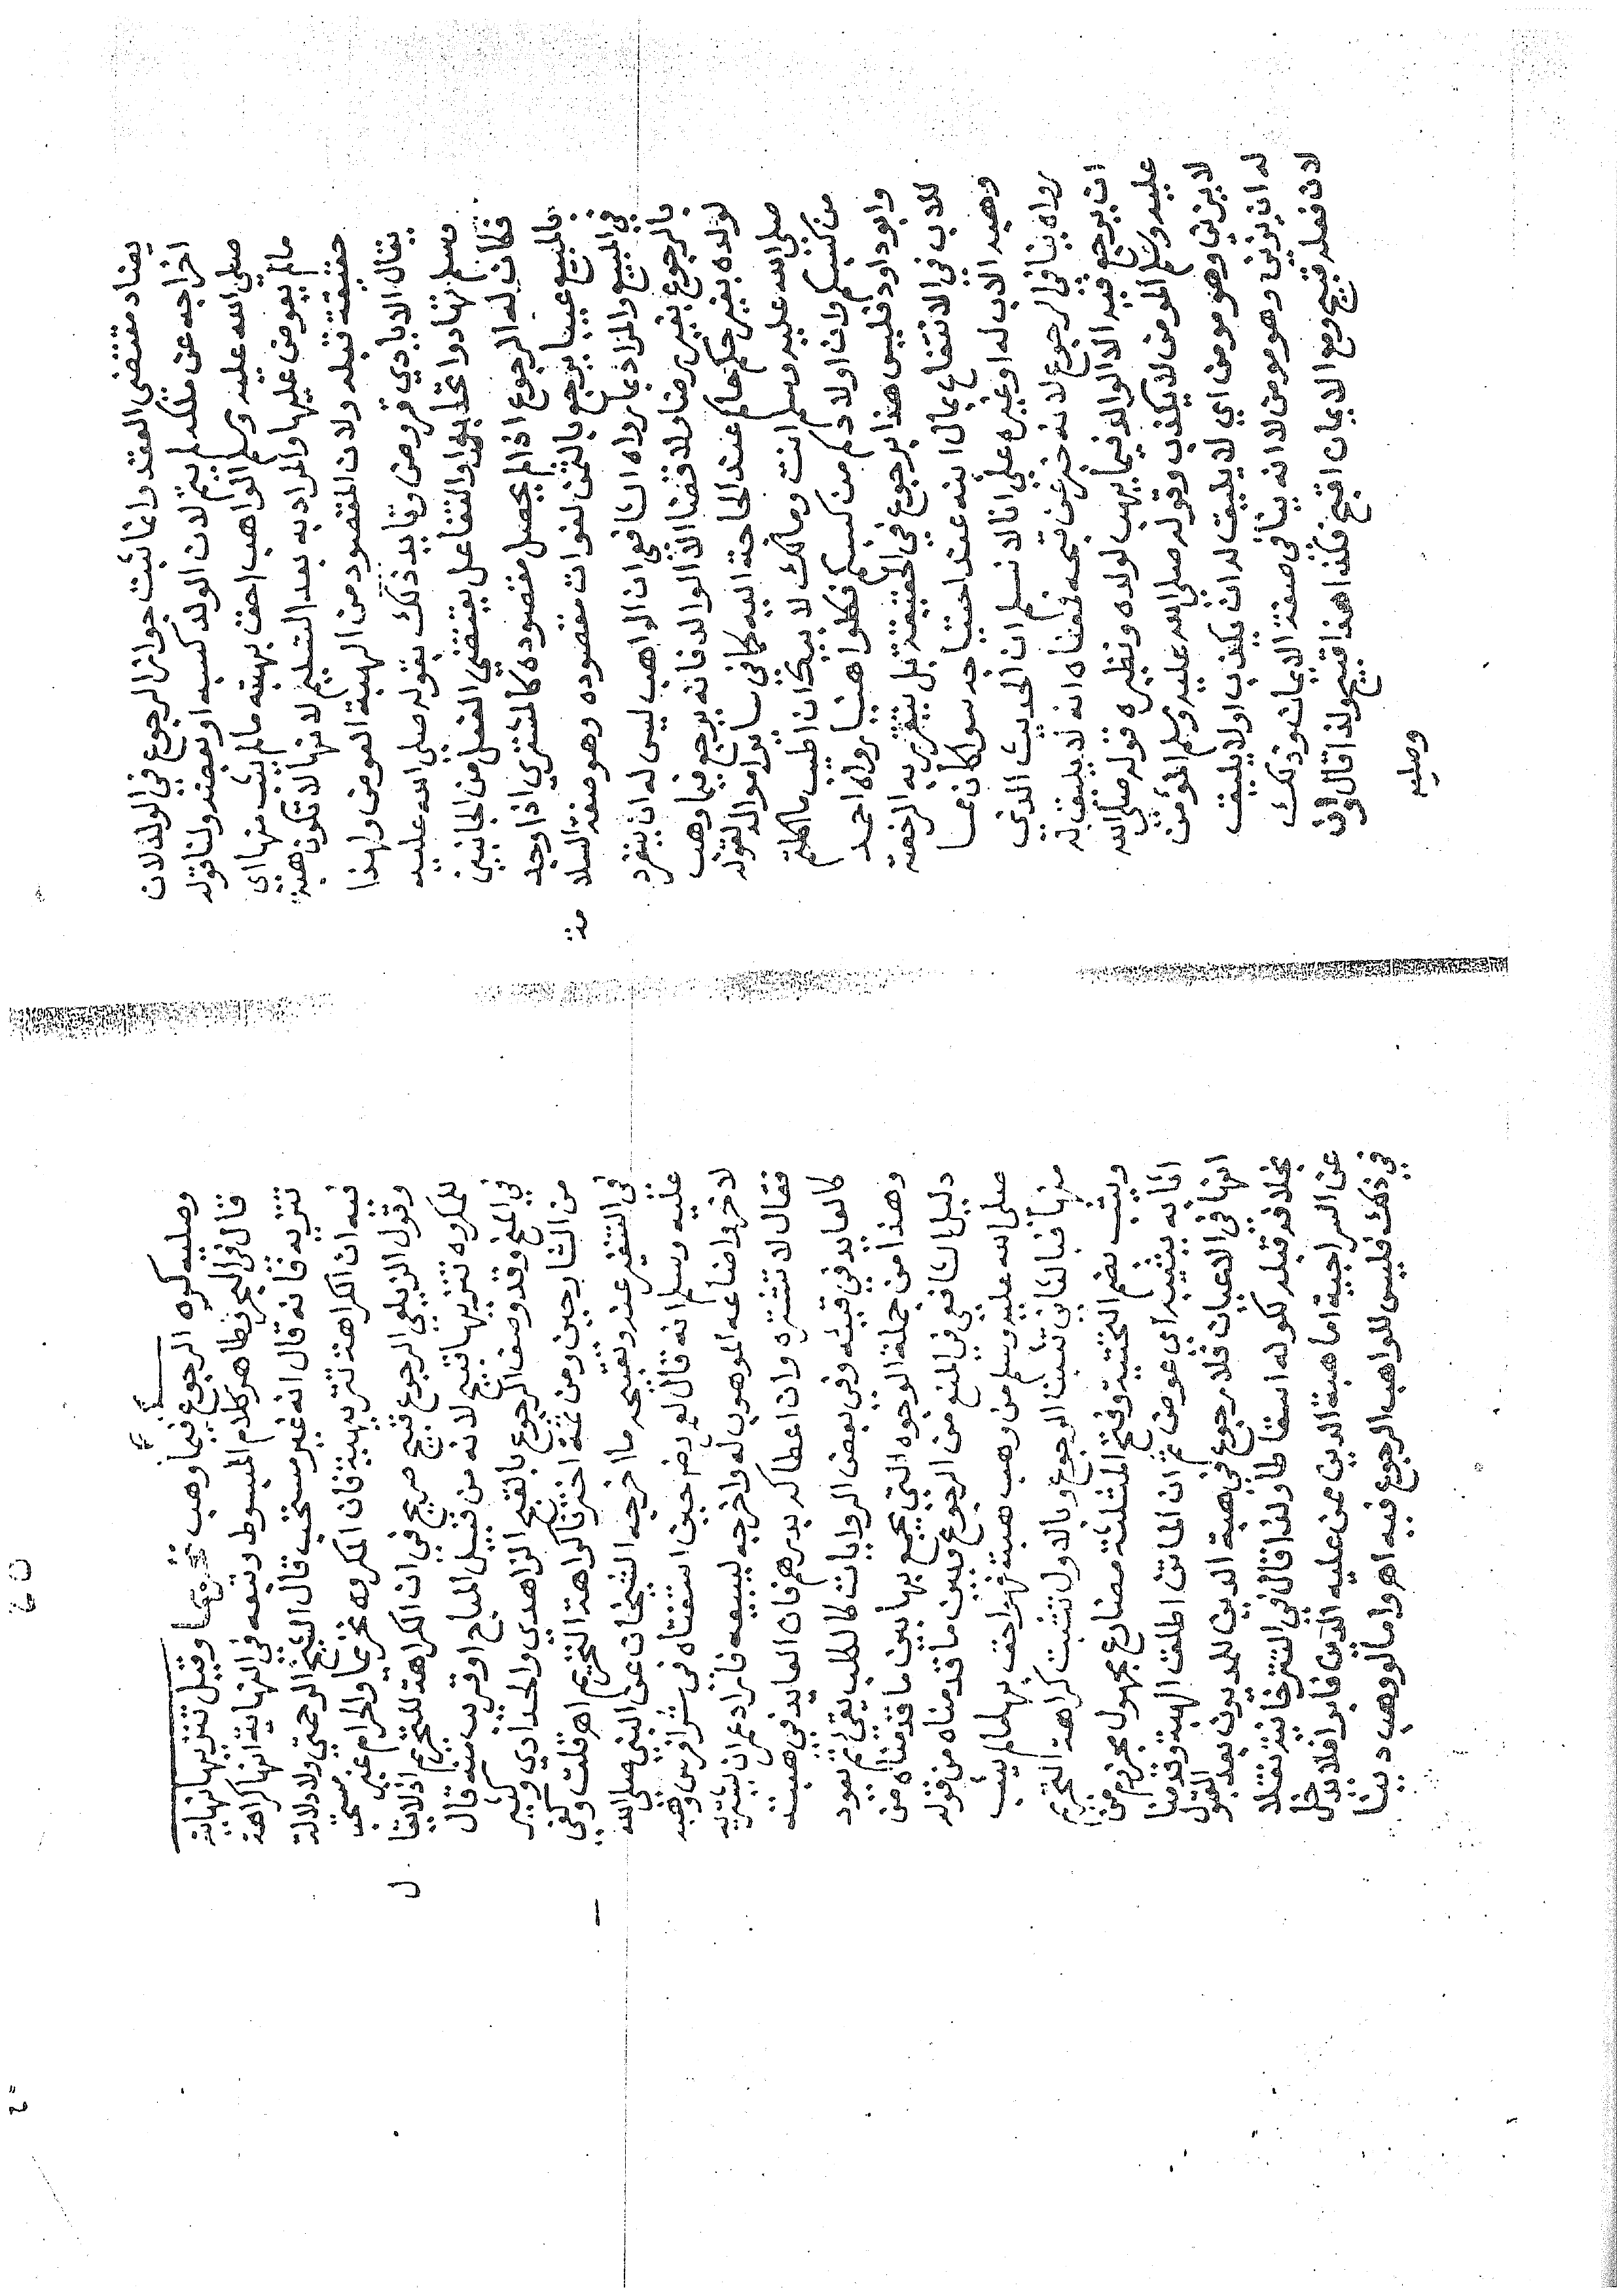 يضاد مقتضى العقد وانما ثبت جواز الرجوع في الولد لان
اخراجه عن ملكه لم يتم لان الولد كسبه او بعضه ولنا قوله
صلى الله عليه وسلم الواهب احق بهبته مالم يثب منها اى
مالم يعوض عليها والمراد به بعد التسليم لانها لا تكون هبة
حقيقة قبله ولان المقصود من الهبة العوض ولهذا
يقال الايادي قروض وتايد ذلك بقوله صلى الله عليه
وسلم تهادوا تحابوا والتفاعل يقتضي الفعل من الجانبين
فكان له الرجوع اذا لم يحصل مقصوده كالمشتري اذا وجد
بالمبيع عيبا يرجع بالثمن لفوات مقصوده وهو صفة السلا
مة
في المبيع والمراد بما رواه الشافعي ان الواهب ليس له ان ينفرد
بالرجوع بغير رضا ولا قضا الا الوالد فانه يرجع فيما وهب
لولده بغير حكم حاكم عند الحاجة اليه كما في ساير امواله لقوله
صلى الله عليه وسلم انت ومالك لابيك ان اطيب ما اكلتم
من كسبكم وان اولادكم من كسبكم فكلوا هنيا رواه احمد
وابو داود فليس هذا برجوع في الحقيقة بل يتقرر به الرخصة
للاب في الانتفاع بمال ابنه عند احتياجه سوا كان مما
وهبه الاب له او غيره على انا لا نسلم ان الحديث الذي
رواه ينافي الرجوع لانه خبر عن قبحه فمعناه انه لا يليق له
ان يرجع فيه الا الوالد فيما يهب لولده ونظيره قوله صلى الله
عليه وسلم المومن لا يكذب وقوله صلى الله عليه وسلم المؤمن
لا يزني وهو مومن اي لا يليق له ان يكذب او لا يليق
له ان يزني وهو مومن لا انه ينافي صفة الايمان وذلك
لان فعله قبيح ومع الايمان اقبح فكذا هذا قبيح ولذا قال وان
وصليه
وصليه كره الرجوع فيما وهب تحريما وقيل تنزيها نهاية
قال في البحر ظاهر كلام المبسوط وتبعه في النهاية انها كراهة
تنزيه فانه قال انه غير مستحب قال الشيخ الرحمتي ولا دلالة
فيه ان الكراهة تنزيهية فان المكروه تحريما والحرام غير مستحب
وقول الزيلعي الرجوع قبيح صريح في ان الكراهة للتحريم اذ لا يقا
ل
للمكروه تنزيها قبيح لانه من قبيل المباح او قريب منه قال
في المنح وقد وصف الرجوع بالقبح الزاهدي والحدادي وكثير
من الشارحين ومن ثمة اخترنا كراهة التحريم اهـ قلت وكفى
في التنفير عنه وتقبيحه ما اخرجه الشيخان عن النبي صلى الله
عليه وسلم انه قال لعمر رضه حين استفتاه في شرا فرس وهبه
لاخر واضاعه الموهوب له واخرجه لبيعه فاراد عمر ان يشتريه
فقال لا تشتره وان اعطاكه بدرهم فان العايد في هبته
كالعايد في قيئه وفي بعض الروايات كالكلب يقئ ثم يعود
وهذا من جملة الوجوه التي يجمع بها بين ما قدمناه من
دليل الشافعي في المنع من الرجوع وبين ما قدمناه من قوله
صلى الله عليه وسلم من وهب هبة فهو احق بها مالم يثب
منها فبالثاني تثبت الرجوع وبالاول تثبت كراهة التحريم
ويثب بضم التحتية وفتح المثلثة مضارع مجهول مجزوم من
اثابه يثيبه اي عوض ثم ان الماتن اطلق الهبة وقد منا
انها في الاعيان فلا رجوع في هبة الدين للمديون بعد القبول
بخلافه قبله لكونه اسقاطا ولذا قال في التترخانية نقلا
عن السراجية اما هبة الدين ممن عليه الدين فابرا فلا يدخل
في ذلك فليس للواهب الرجوع فيه اهـ واما لو وهب دينا